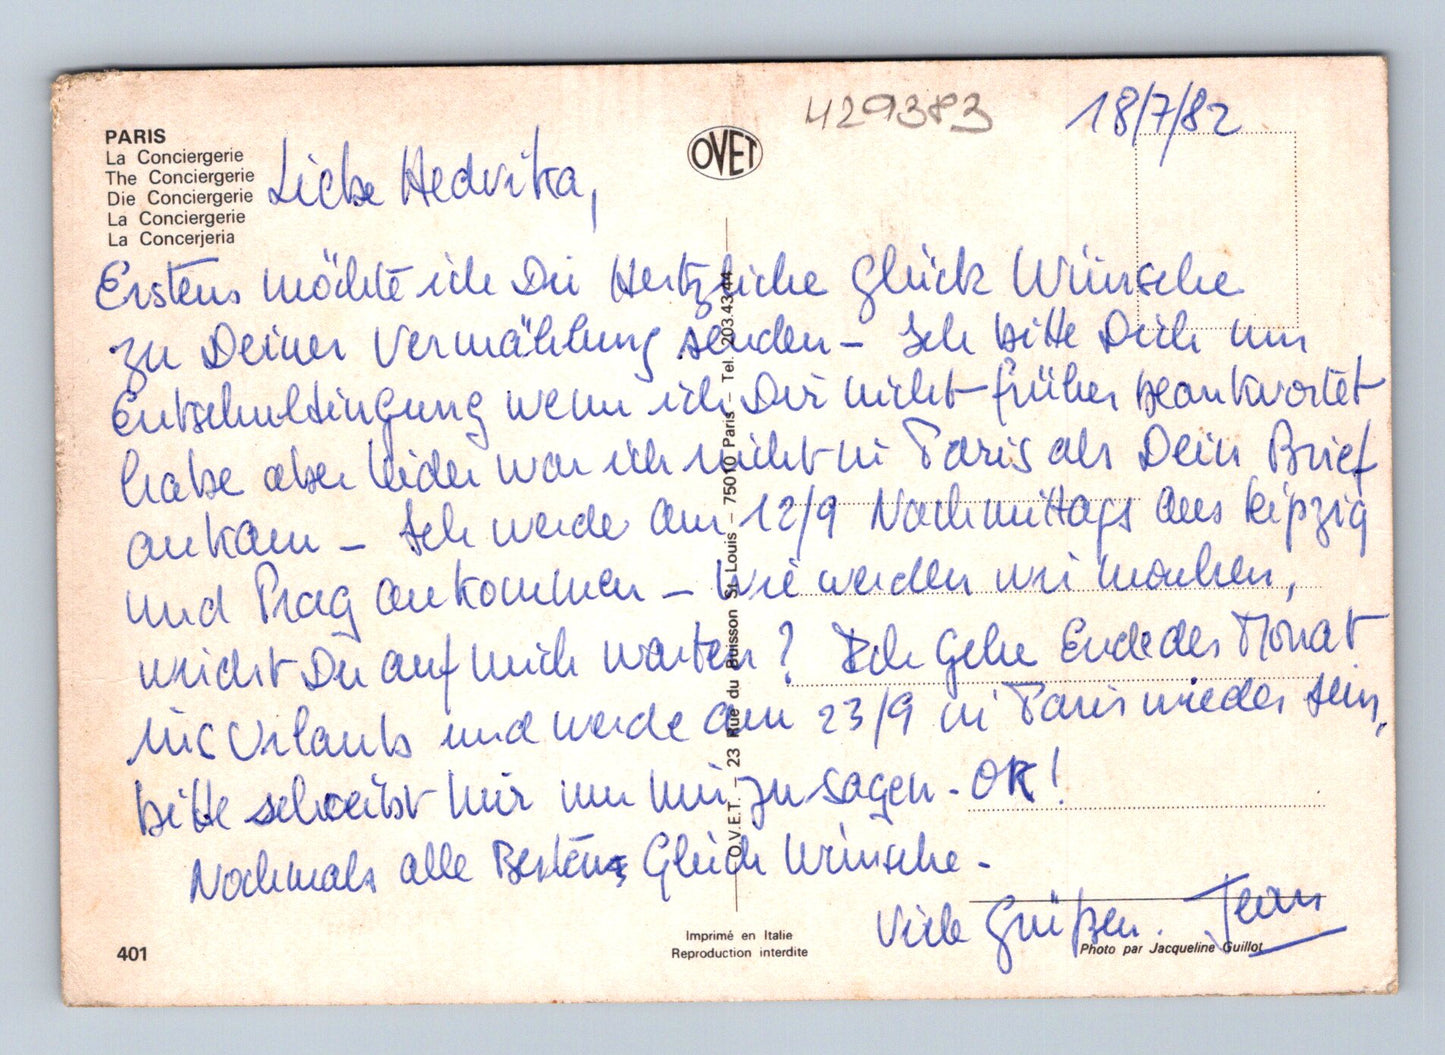 429383
18/7/82
PARIS
La Conciergerie
The Conciergerie
Die Conciergerie
La Conciergerie
La Concerjeria
OVET
Liebe Hedvika,
Erstens möchte ich Dir Hertzliche Glück Wünsche
zu Deiner Vermählung senden – Ich bitte Dich um
Entschultingung wenn ich Dir nicht früher beantwortet
habe aber leider war ich nicht in Paris als Dein Brief
ankam – Ich werde am 12/9 Nachmittags aus Leipzig
und Prag ankommen – Wie werden wir machen,
wirst Du auf mich warten ? Ich gehe Ende des Monat
ins Urlaub und werde am 23/9 in Paris wieder sein,
bitte schreibst mir um mir zu sagen - OK !
Nochmals alle Bestens Glück Wünsche -
Viele Grüßen. Jean
O.V.E.T. – 23 Rue du Buisson St Louis – 75010 Paris – Tel. 203.43.44
401
Imprimé en Italie
Reproduction interdite
Photo par Jacqueline Guillot